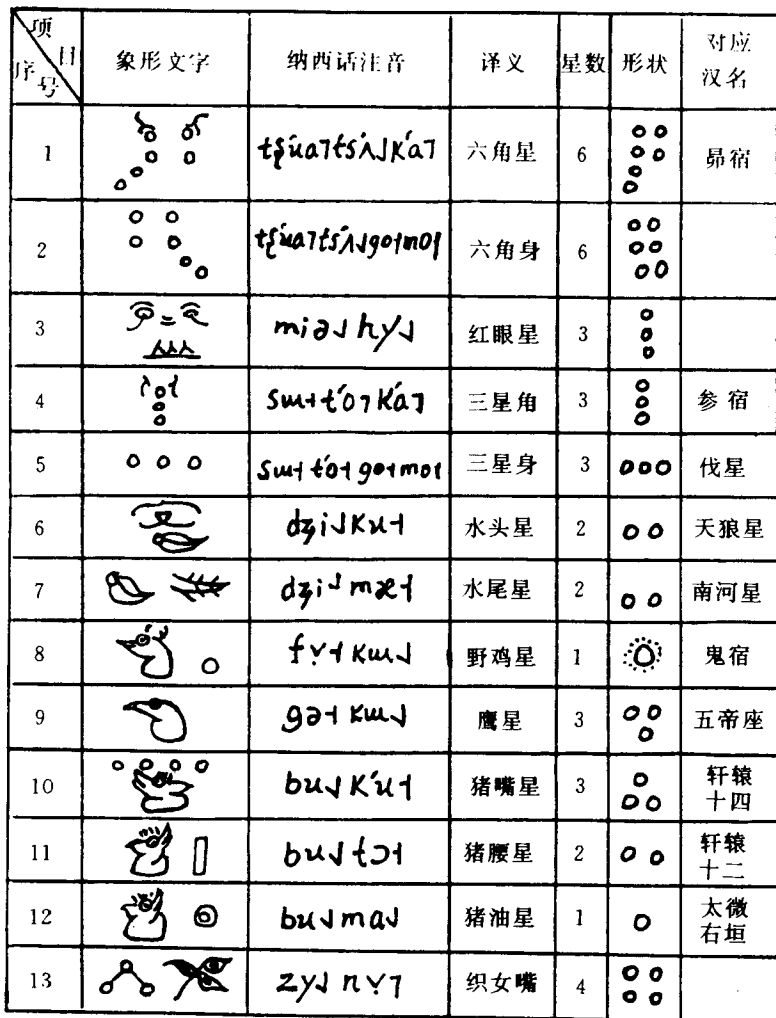 项目 序号 象形文字 纳西话注音 译义 星数 形状 对应汉名
1 tʂ‘ua˥ts‘ʌ˩k‘a˥ 六角星 6 昴宿
2 tʂ‘ua˥ts‘ʌ˩go˧mo˧ 六角身 6
3 miə˩hy˩ 红眼星 3
4 sɯ˧t‘o˥k‘a˥ 三星角 3 参宿
5 sɯ˧t‘o˧go˧mo˧ 三星身 3 伐星
6 dʑi˩ku˧ 水头星 2 天狼星
7 dʑi˩mæ˧ 水尾星 2 南河星
8 fv̩˧kɯ˩ 野鸡星 1 鬼宿
9 gə˧kɯ˩ 鹰星 3 五帝座
10 bu˩k‘u˧ 猪嘴星 3 轩辕十四
11 bu˩tɔ˧ 猪腰星 2 轩辕十二
12 bu˩ma˩ 猪油星 1 太微右垣
13 zy˩nv̩˥ 织女嘴 4